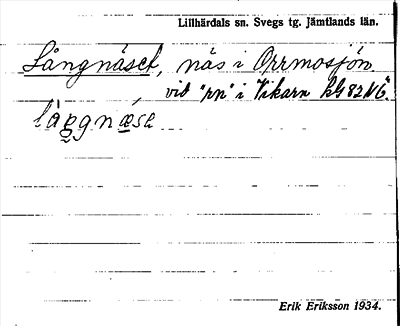 Lillhärdals sn. Svegs tg. Jämtlands län.
Långnäset, näs i Orrmosjön
vid "rn" i Vikarn
Erik Eriksson 1934.